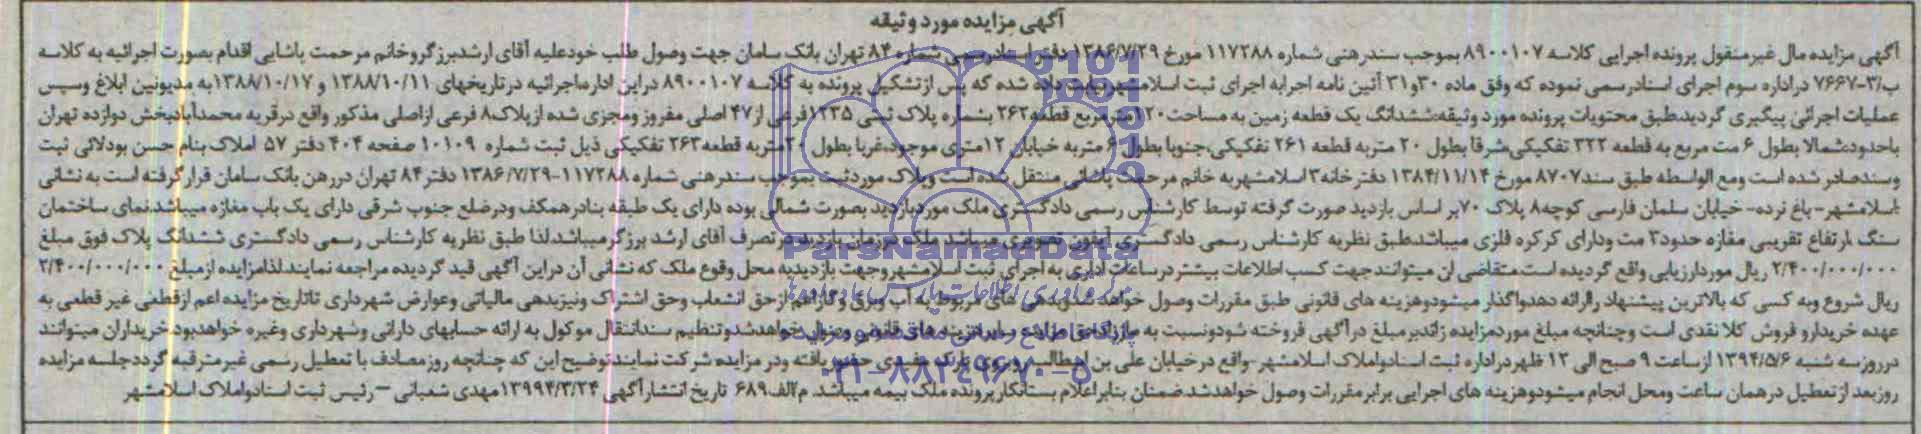 آگهی مزایده مورد وثیقه
آگهی مزایده مال غیرمنقول پرونده اجرایی کلاسه ۸۹۰۰۱۰۷ بموجب سندرهنی شماره ۱۱۷۲۸۸ مورخ ۱۳۸۶/۷/۲۹ دفتراسنادرسمی شماره ۸۴ تهران بانک سامان جهت وصول طلب خودعلیه آقای ارشدبرزگروخانم مرحمت پاشایی اقدام بصورت اجرائیه به کلاسه
ب/۳-۷۶۶۷ دراداره سوم اجرای اسنادرسمی نموده که وفق ماده ۳۰و۳۱ آئین نامه اجرابه اجرای ثبت اسلامشهرنیابت داده شده که پس ازتشکیل پرونده به کلاسه ۸۹۰۰۱۰۷ دراین اداره‌اجرائیه درتاریخهای ۱۳۸۸/۱۰/۱۱ و ۱۳۸۸/۱۰/۱۷به مدیونین ابلاغ وسپس
عملیات اجرائی پیگیری گردید،طبق محتویات پرونده مورد وثیقه:ششدانگ یک قطعه زمین به مساحت۱۲۰مترمربع قطعه۲۶۲ بشماره پلاک ثبتی ۱۲۳۵فرعی از۴۷ اصلی مفروز ومجزی شده ازپلاک۸ فرعی ازاصلی مذکور واقع درقریه محمدآبادبخش دوازده تهران
باحدود:شمالا بطول ۶ مت مربع به قطعه ۳۲۲ تفکیکی،شرقا بطول ۲۰ متربه قطعه ۲۶۱ تفکیکی،جنوبا بطول ۶ متربه خیابان ۱۲متری موجود،غربا بطول ۲۰متربه قطعه۲۶۳ تفکیکی ذیل ثبت شماره ۱۰۱۰۹ صفحه ۴۰۴ دفتر ۵۷ املاک بنام حسن بودلائی ثبت
وسندصادر شده است ومع الواسطه طبق سند۸۷۰۷ مورخ ۱۳۸۴/۱۱/۱۴ دفترخانه۳ اسلامشهربه خانم مرحمت پاشائی منتقل شده است وپلاک موردثبت بموجب سندرهنی شماره ۱۱۷۲۸۸-۱۳۸۶/۷/۲۹ دفتر ۸۴ تهران دررهن بانک سامان قرارگرفته است به نشانی
:اسلامشهر-باغ نرده-خیابان سلمان فارسی کوچه۸ پلاک ۷۰بر اساس بازدید صورت گرفته توسط کارشناس رسمی دادگستری ملک موردبازدید بصورت شمالی بوده دارای یک طبقه بنادرهمکف ودرضلع جنوب شرقی دارای یک باب مغازه میباشد،نمای ساختمان
سنگ ،ارتفاع تقریبی مغازه حدود۳ مت ودارای کرکره فلزی میباشد،طبق نظریه کارشناس رسمی دادگستری آیفون تصویری میباشد ملک درزمان بازدید درتصرف آقای ارشد برزگرمیباشد.لذا طبق نظریه کارشناس رسمی دادگستری ششدانگ پلاک فوق مبلغ
۲/۴۰۰/۰۰۰/۰۰۰ ریال موردارزیابی واقع گردیده است،متقاضی ان میتوانندجهت کسب اطلاعات بیشتردرساعات اداری به اجرای ثبت اسلامشهروجهت بازدیدبه محل وقوع ملک که نشانی آن دراین آگهی قید گردیده مراجعه نمایند.لذامزایده ازمبلغ ۲/۴۰۰/۰۰۰/۰۰۰
ریال شروع وبه کسی که بالاترین پیشنهاد راارائه دهدواگذار میشودوهزینه های قانونی طبق مقررات وصول خواهدشدبدهی های مربوط به آب وبرق وگازاعم ازحق انشعاب وحق اشتراک ونیزبدهی مالیاتی وعوارض شهرداری تاتاریخ مزایده اعم ازقطعی غیر قطعی به
عهده خریدارو فروش کلا نقدی است وچنانچه مبلغ موردمزایده زائدبرمبلغ درآگهی فروخته شودونسبت به مازاد وصول خواهدشدوتنظیم سندانتقال موکول به ارائه حسابهای دارائی وشهرداری وغیره خواهدبود،خریداران میتوانند
درروزسه شنبه ۱۳۹۴/۵/۶ ازساعت ۹ صبح الی ۱۲ ظهردراداره ثبت اسنادواملاک اسلامشهر-واقع درخیابان علی بن ابیطالب روبروی پارک حضور یافته ودر مزایده شرکت نمایند،توضیح این که چنانچه روزمصادف با تعطیل رسمی غیرمترقبه گرددجلسه مزایده
روزبعد ازتعطیل درهمان ساعت ومحل انجام میشودوهزینه های اجرایی برابرمقررات وصول خواهدشد.ضمنان بنابراعلام بستانکارپرونده ملک بیمه میباشد. م/الف۶۸۹ تاریخ انتشارآگهی ۱۳۹۹۴/۳/۲۴مهدی شعبانی –رئیس ثبت اسنادواملاک اسلامشهر
ParsNamadData
۰۲۱-۸۸۳۴۹۶۷۰-۵